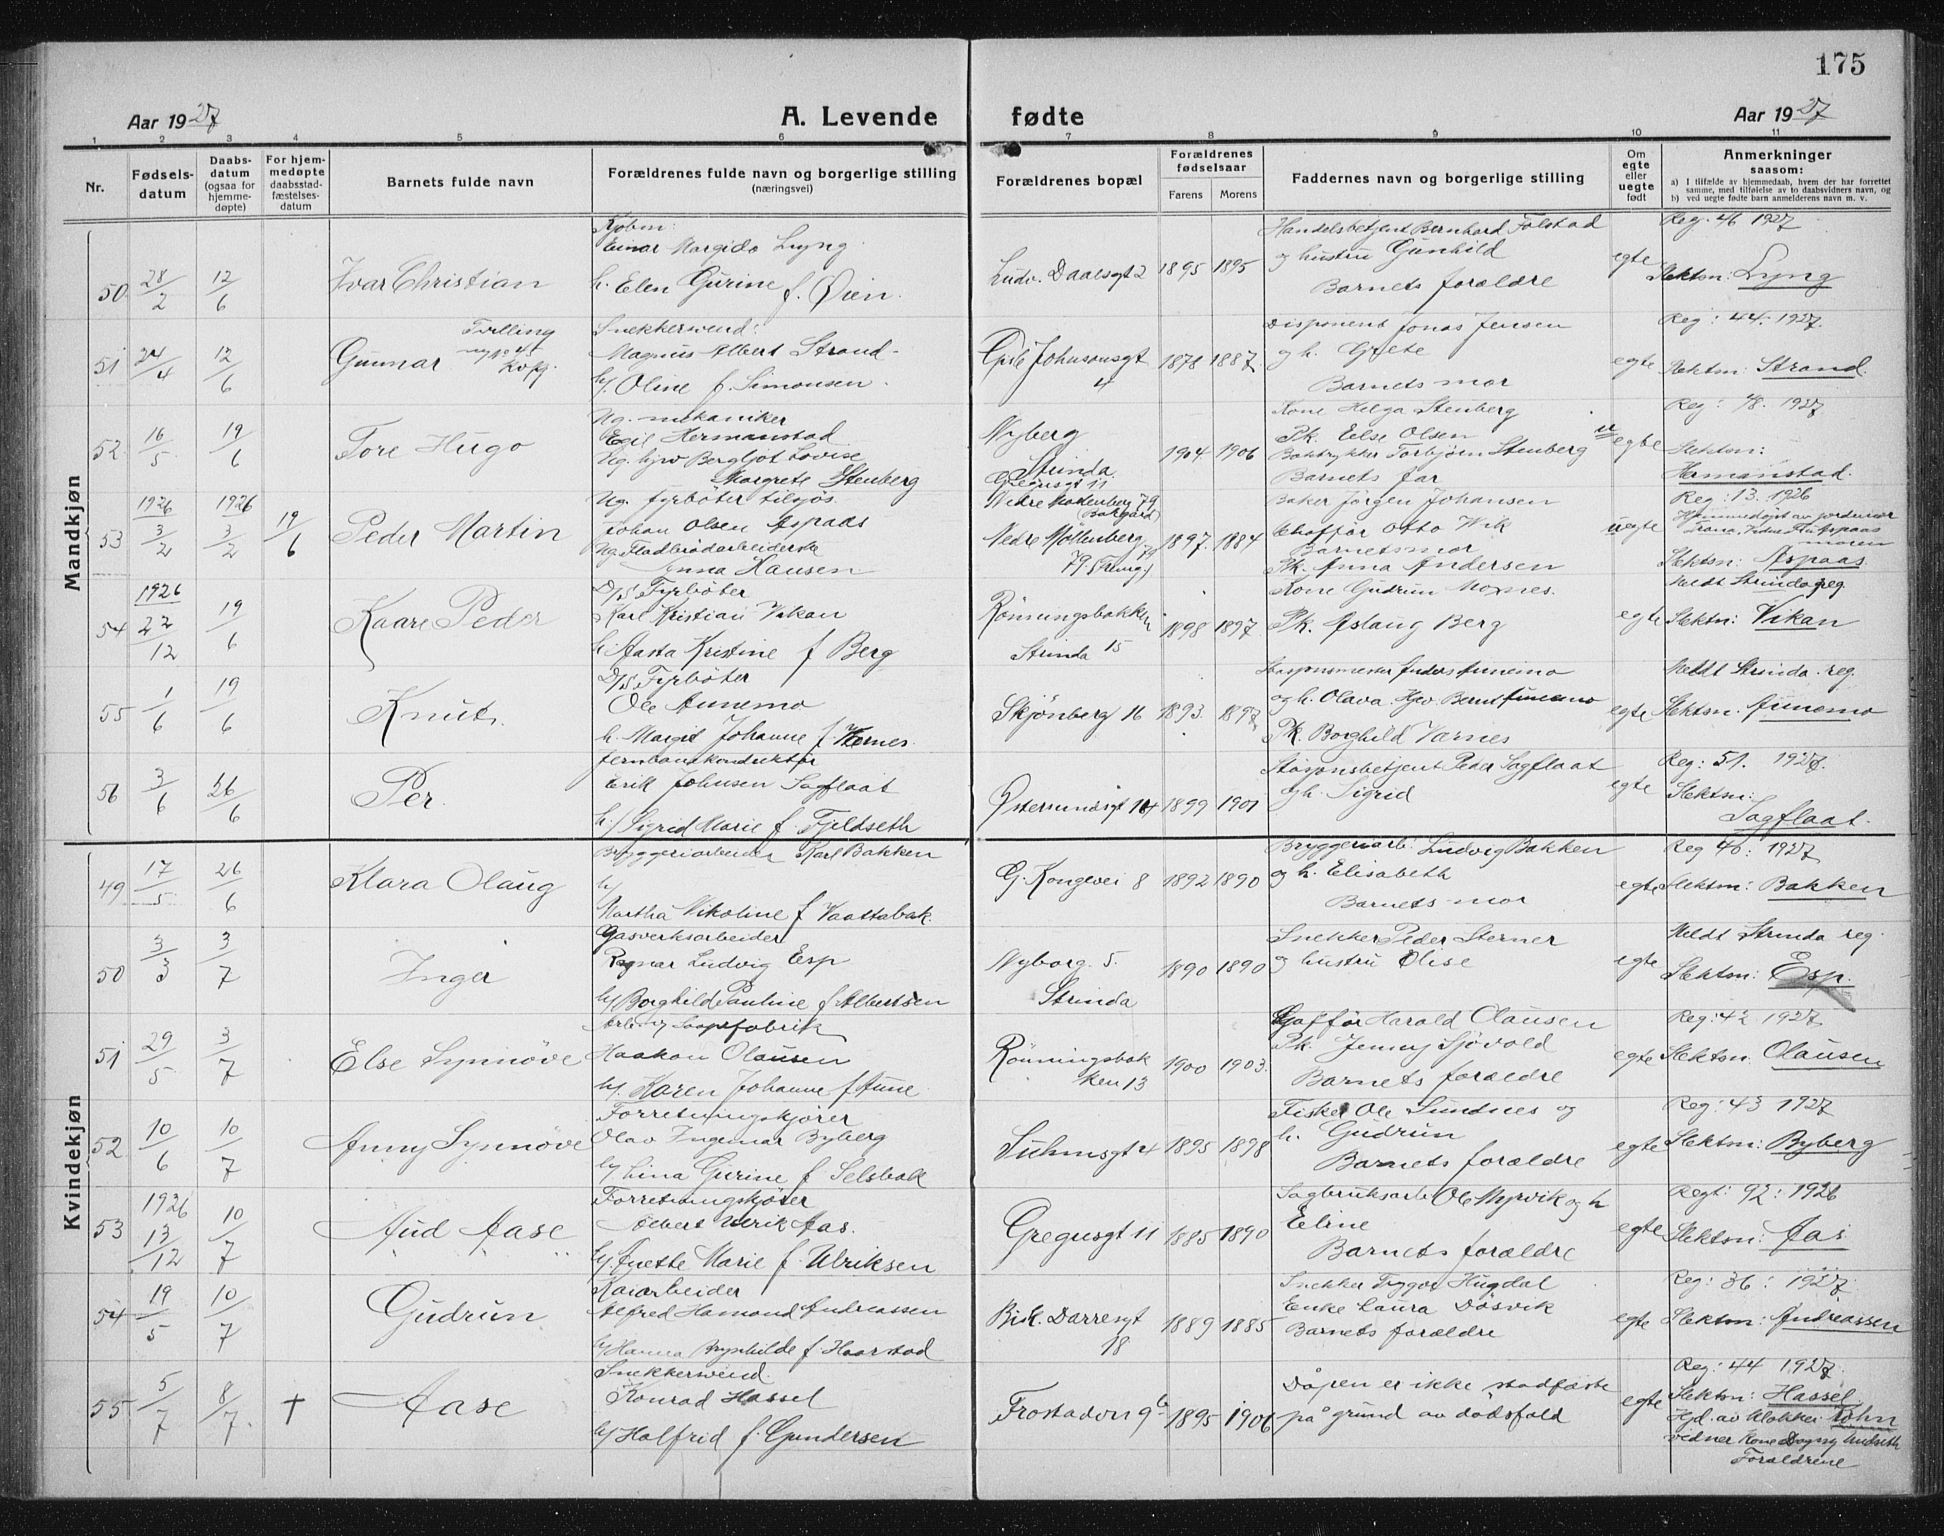 175
Aar 1927
A. Levende fødte
Aar 1927
1 2 3 4 5 6 7 8 9 10 11
Nr.
Fødsels-datum
Daabs-datum (ogsaa for hjemme-døpte)
For hjem-medøpte daabsstad-fæstelses-datum
Barnets fulde navn
Forældrenes fulde navn og borgerlige stilling (næringsvei)
Forældrenes bopæl
Forældrenes fødselsaar
Farens Morens
Faddernes navn og borgerlige stilling
Om egte eller uegte født
Anmerkninger saasom:
a) I tilfælde av hjemmedaab, hvem der har forrettet samme, med tilføielse av to daabsvidners navn, og
b) ved uegte fødte barn anmelderens navn m. v.
Mandkjøn
50 28/2 12/6 Ivar Christian
Kjøbm:
Einar Margido Lyng
h. Elen Gurine f. Øien.
Ludv. Daaesgt 2 1895 1895
Handelsbetjent Bernhard Folstad
og hustru Gunhild
Barnets forældre
egte
Reg: 46 1927
Slektsn: Lyng
51 24/4 12/6 Gunnar
Tvilling
Snekkersvend:
Magnus Albert Strand
h/ Oline f. Simonsen.
Gisle Johnsonsgt
4
1878 1887
Disponent Jonas Jensen
og h. Grete
Barnets mor
egte
Reg: 44. 1927.
Slektsn: Strand.
52 16/5 19/6 Tore Hugo
Ug. mekaniker
Egil Hermanstad
Ug. hjv Bergljot Lovise
Margrete Stenberg
Nyberg
Strinda
Gregusgt 11
1904 1906
Kone Helga Stenberg
Pk. Else Olsen
Boktrykker Torbjørn Stenberg
Barnets far
u egte
Reg: 48. 1927
Slektsn:
Hermanstad.
53 1926 3/2 1926 3/2 19/6 Peder Martin
Ug. fyrbøter tilsjøs
Johan Olsen Aspaas
Ug. Fladbrødarbeiderske
Anna Hansen
Nedre Møllenberg 79
(Bakgård)
Nedre Møllenberg
79
1897 1884
Baker Jørgen Johansen
Chaffør Otto Wik
Barnets mor
Pk. Anna Andersen
uegte
Reg: 13. 1926
Hjemmedøpt av jordmor
moren
Slektsn: Aspaas
54 1926 22/12 19/6 Kaare Peder
D/S Fyrbøter
Karl Kristian Vikan
h. Aasta Kristine f Berg
Rønningsbakken
Strinda 15
1898 1897
Kone Gudrun Moxnes.
Pk. Aslaug Berg
egte
Meldt Strinda reg.
Slektsn: Vikan
55 1/6 19/6 Knut.
D/S Fyrbøter
Ole Aunemo
h. Margit Johanne f. Wernes.
Skjønberg 16 1893. 1897
Stasjonsmester Anders Aunemo
og h. Olava. Hjv Bernt Aunemo
Pk. Borghild Værnes
egte
Meldt Strinda. reg.
Slektsn. Aunemo
56 3/6 26/6 Per.
Jernbanekonduktør
Erik Johnsen Sagflaat
h/ Sigrid Marie f. Fjeldseth
Østersundsgt 14 1899 1901
Stasjonsbetjent Peder Sagflaat
og h. Sigrid
egte
Reg: 51. 1927.
Slektsn:
Sagflaat.
Kvindekjøn
49 17/5 26/6 Klara Olaug
Bryggeriarbeider Karl Bakken
h/
Martha Nikoline f Vaattabak.
G. Kongevei 8 1892 1890
Bryggeriarb: Ludvig Bakken
og h. Elisabeth
Barnets mor
egte
Reg 40: 1927
Slektsn: Bakken
50 3/3 3/7 Inger
Gasverksarbeider
Ragnar Ludvig Esp
h/ Borghild Pauline f. Albertsen
Nyborg. 5.
Strinda
1890 1890
Snekker Peder Sterner
og hustru Olise
egte
Meldt Strinda reg.
Slektsn: Esp.
51 29/5 3/7 Else Synnøve
Arb. v/ Saapefabrik
Haakon Olausen
h/ Karen Johanne f Aune.
Rønningsbak
ken 13
1900 1903.
Chaffør Harald Olausen
Pk. Jenny Sjøvold
Barnets forældre
egte
Reg: 42 1927
Slektsn. Olausen
52 10/6 10/7 Anny Synnøve
Forretningskjører
Olav Ingemar Byberg
h/ Lina Gurine f Selsbak
Suhmsgt 4 1895 1898
Fisker Ole Sundnes og
h. Gudrun
Barnets forældre
egte
Reg: 43 1927
Slektsn: Byberg
53 1926 13/12 10/7 Aud Aase
Forretningskjører
Albert Ulrik Aas.
h/ Anette Marie f Ulriksen
Gregusgt 11 1885 1890
Sagbruksarb Ole Myrvik og h
Eline
Barnets forældre
egte
Regt: 92: 1926
Slektsn: Aas
54 19/5 10/7 Gudrun
Kaiarbeider
Alfred Hamond Andreassen
h/ Hanna Brynhilde f. Haarstad
Bisk. Darresgt
18
1889 1885
Snekker Trygve Hugdal
Enke Laura Døsvik
Barnets forældre
egte
Reg: 36: 1927.
Slektsn: Andreassen
55 5/7 8/7. † Aase
Snekkersvend.
Konrad Hassel
h/ Halfrid f. Gundersen
Frostadvn 9b 1895 1906
Dåpen er ikke stadfæste
på grund av dødsfald
egte
Reg: 44 1927.
Slektsn: Hassel
Hjd. av klokker Røhn
vidner kone Dagny
Forældrene